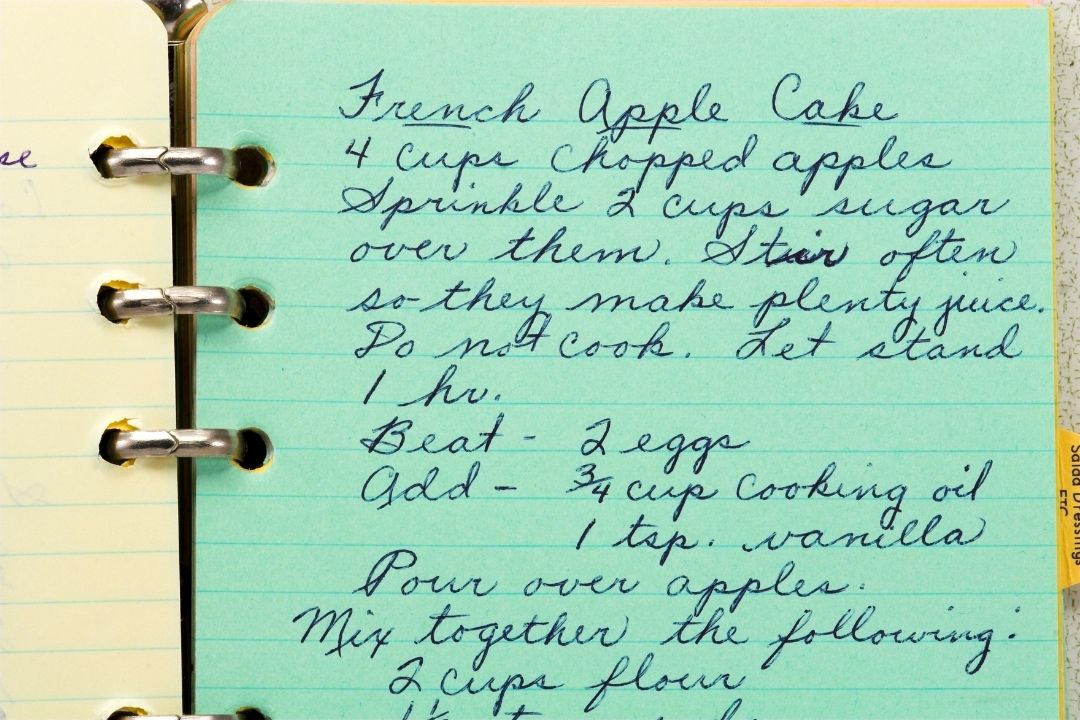 se
French Apple Cake
4 cups chopped apples
Sprinkle 2 cups sugar
over them. Stir often
so they make plenty juice.
Do not cook. Let stand
1 hr.
Beat - 2 eggs
Add - 3/4 cup cooking oil
1 tsp. vanilla
Pour over apples.
Mix together the following:
2 cups flour
Salad Dressings
ETC